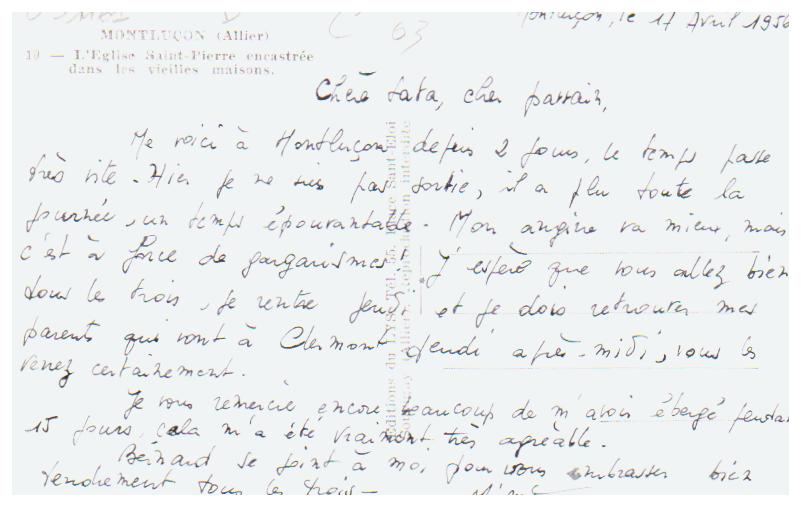 Montluçon, le 17 Avril 1956
C 63
MONTLUÇON (Allier)
19 — L'Eglise Saint-Pierre encastrée
dans les vieilles maisons.
Chère tata, cher parrain,
Me voici à Montluçon depuis 2 jours, le temps passe
très vite - Hier je ne suis pas sortie, il a plu toute la
journée, un temps épouvantable - Mon angine va mieux, mais
c'est à force de gargarismes! J'espère que vous allez bien
tous les trois, je rentre jeudi et je dois retrouver mes
parents qui vont à Clermont jeudi après-midi, vous les
verrez certainement.
Je vous remercie encore beaucoup de m'avoir ébergé pendant
15 jours, cela m'a été vraiment très agréable.
Bernard se joint à moi pour vous embrasser bien
tendrement tous les trois -
Editions du
Reproduction interdite